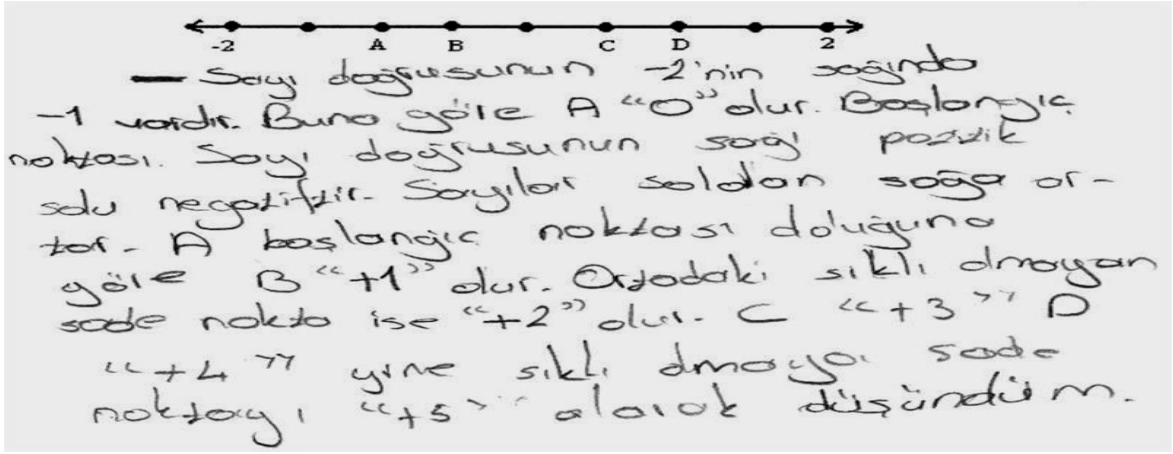 -2 A B C D 2
— Sayı doğrusunun -2'nin sağında
-1 vardır. Buna göre A “0” olur. Başlangıç
noktası. Sayı doğrusunun sağı pozitik
solu negatiftir. Sayılar soldan sağa ar-
tar. A başlangıç noktası doluğuna
göre B “+1” olur. Ortadaki sıklı olmayan
sade nokta ise “+2” olur. C “+3” D
“+4” yine sıklı olmaya sade
noktayı “+5” olarak düşündüm.